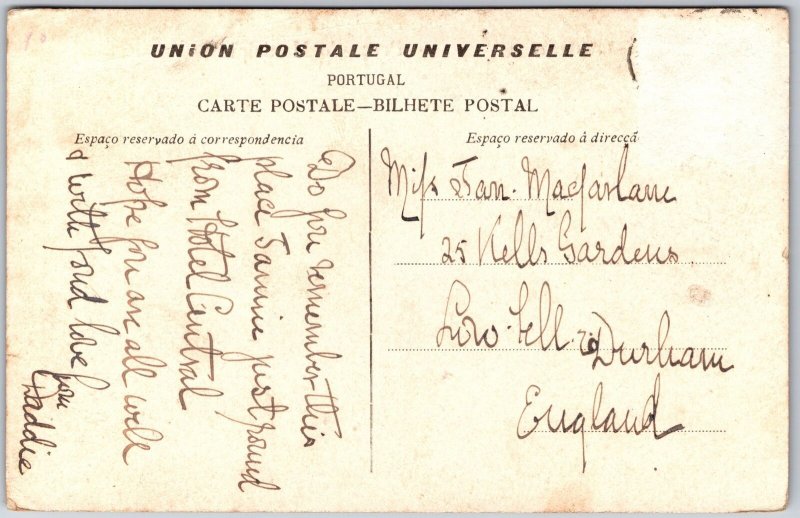 UNiON POSTALE UNIVERSELLE
PORTUGAL
CARTE POSTALE—BILHETE POSTAL
Espaço reservado á correspondencia
Do you remember this
place Jannie just round
from Hotel Central
Hope you are all well
& with fond love from
Daddie
Espaço reservado á direcçã
Miss Jan. Macfarlane
25 Kells Gardens
Low-Fell
Durham
England